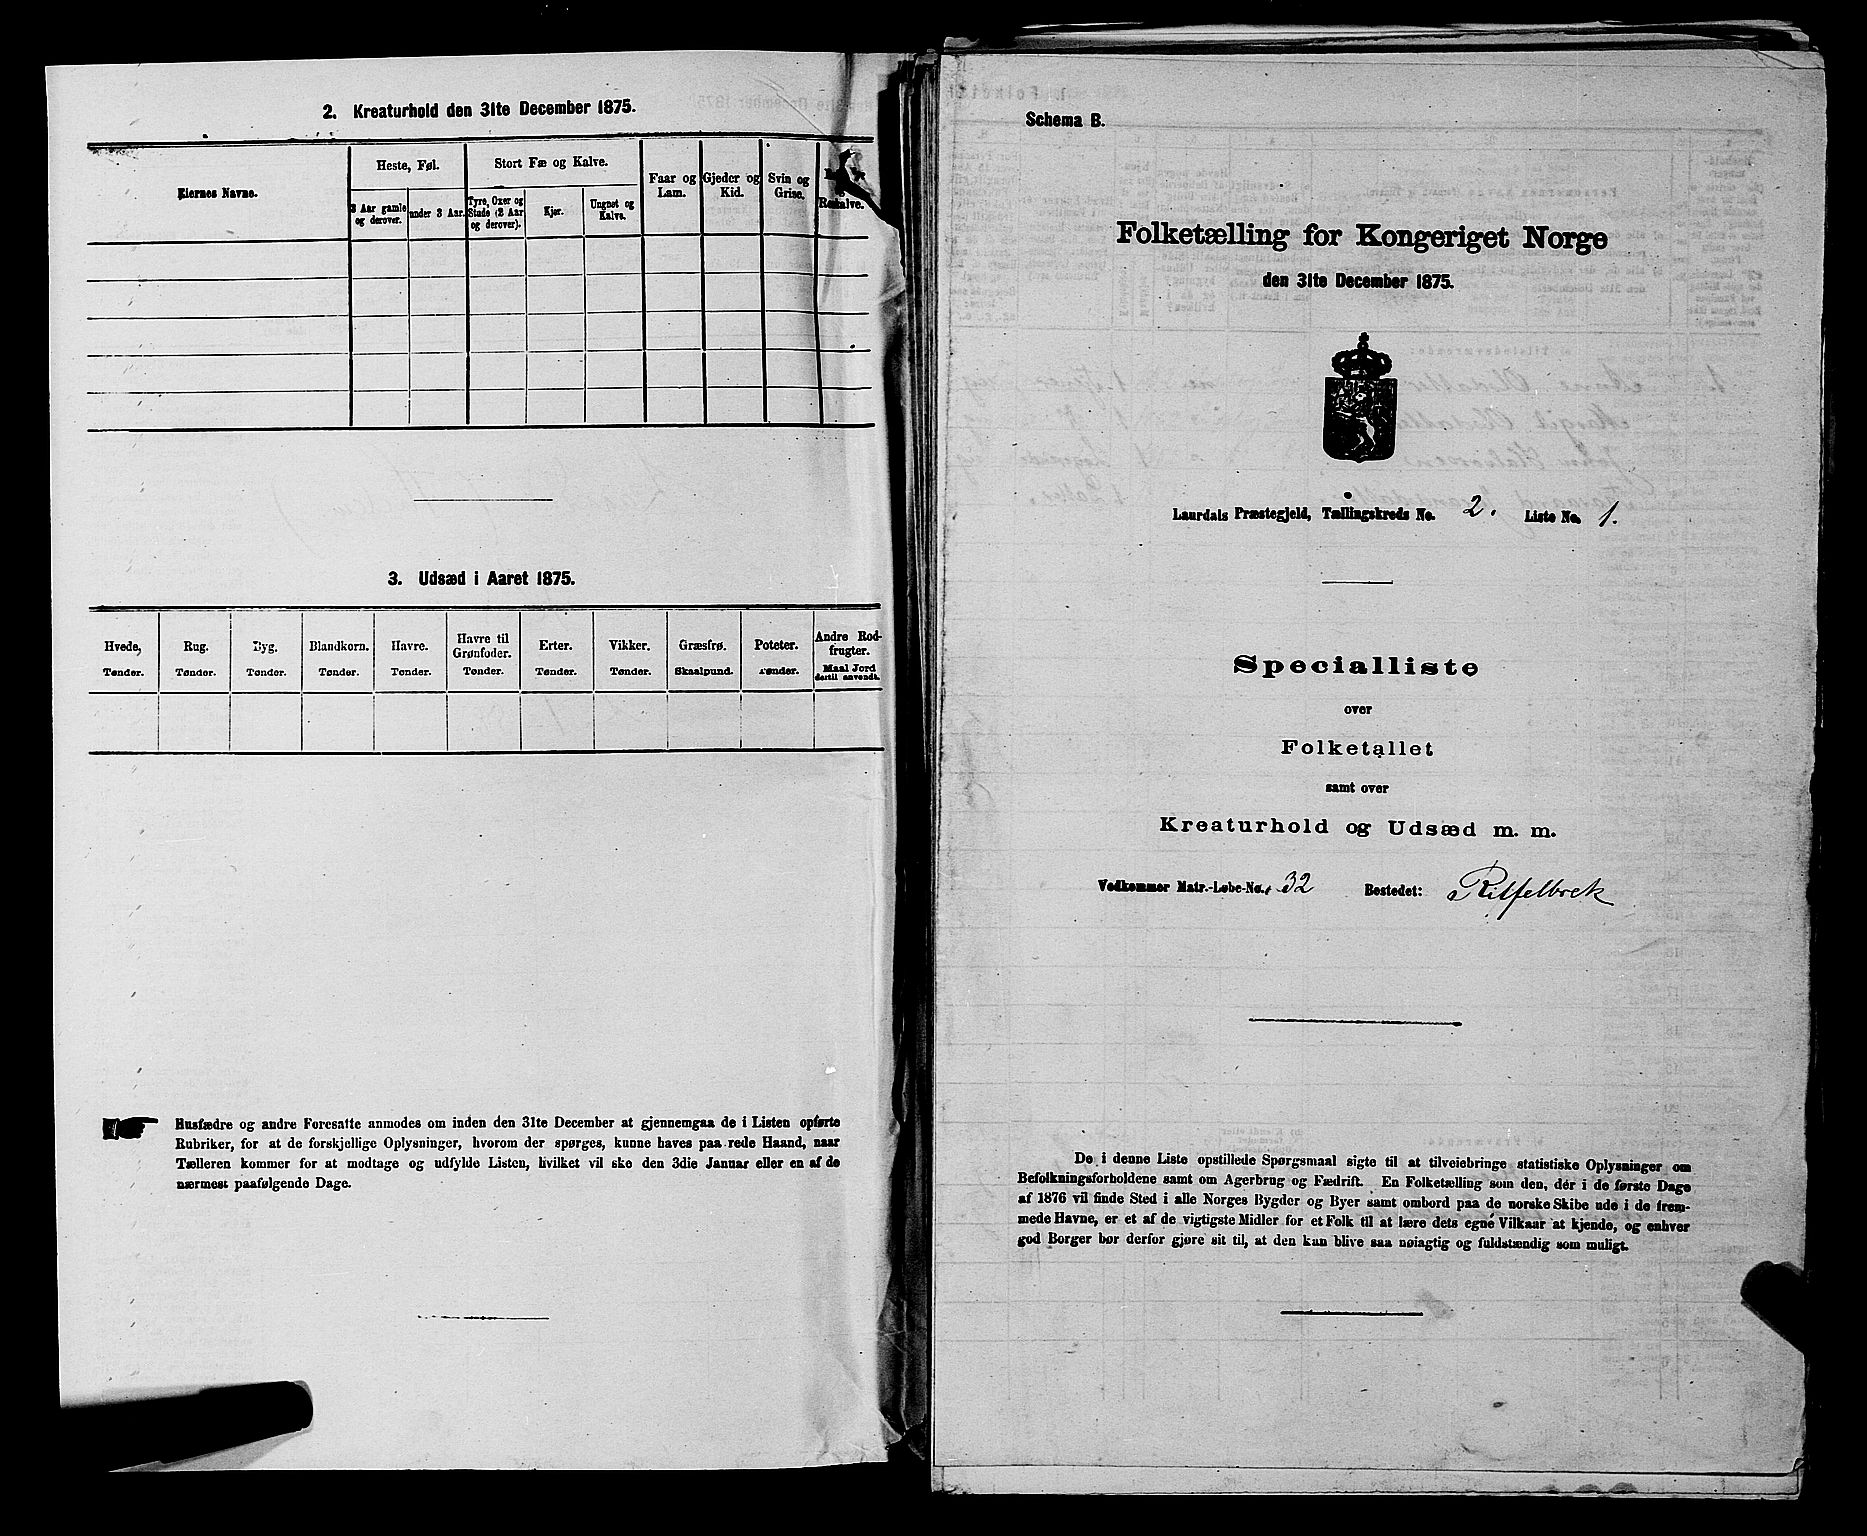 2. Kreaturhold den 31te December 1875.
Eiernes Navne.
Heste, Føl.
Stort Fæ og Kalve.
Faar og Lam.
Gjeder og Kid.
Svin og Grise.
og Renkalve.
3 Aar gamle og derover.
under 3 Aar.
Tyre, Oxer og Stude (2 Aar og derover).
Kjør.
Ungnøt og Kalve.
3. Udsæd i Aaret 1875.
Hvede, Tønder.
Rug. Tønder.
Byg. Tønder.
Blandkorn. Tønder.
Havre. Tønder.
Havre til Grønfoder. Tønder.
Erter. Tønder.
Vikker. Tønder.
Græsfrø. Skaalpund.
Poteter. Tønder.
Andre Rodfrugter. Maal Jord dertil anvendt.
Husfædre og andre Foresatte anmodes om inden den 31te December at gjennemgaa de i Listen opførte
Rubriker, for at de forskjellige Oplysninger, hvorom der spørges, kunne haves paa rede Haand, naar
Tælleren kommer for at modtage og udfylde Listen, hvilket vil ske den 3die Januar eller en af de
nærmest paafølgende Dage.
Schema B.
Folketælling for Kongeriget Norge
den 31te December 1875.
Laurdals Præstegjeld, Tællingskreds No. 2. Liste No. 1.
Specialliste
over
Folketallet
samt over
Kreaturhold og Udsæd m. m.
Vedkommer Matr.-Løbe-No. 32 Bostedet:
De i denne Liste opstillede Spørgsmaal sigte til at tilveiebringe statistiske Oplysninger om
Befolkningsforholdene samt om Agerbrug og Fædrift. En Folketælling som den, der i de første Dage
af 1876 vil finde Sted i alle Norges Bygder og Byer samt ombord paa de norske Skibe ude i de frem-
mede Havne, er et af de vigtigste Midler for et Folk til at lære dets egne Vilkaar at kjende, og enhver
god Borger bør derfor gjøre sit til, at den kan blive saa nøiagtig og fuldstændig som muligt.